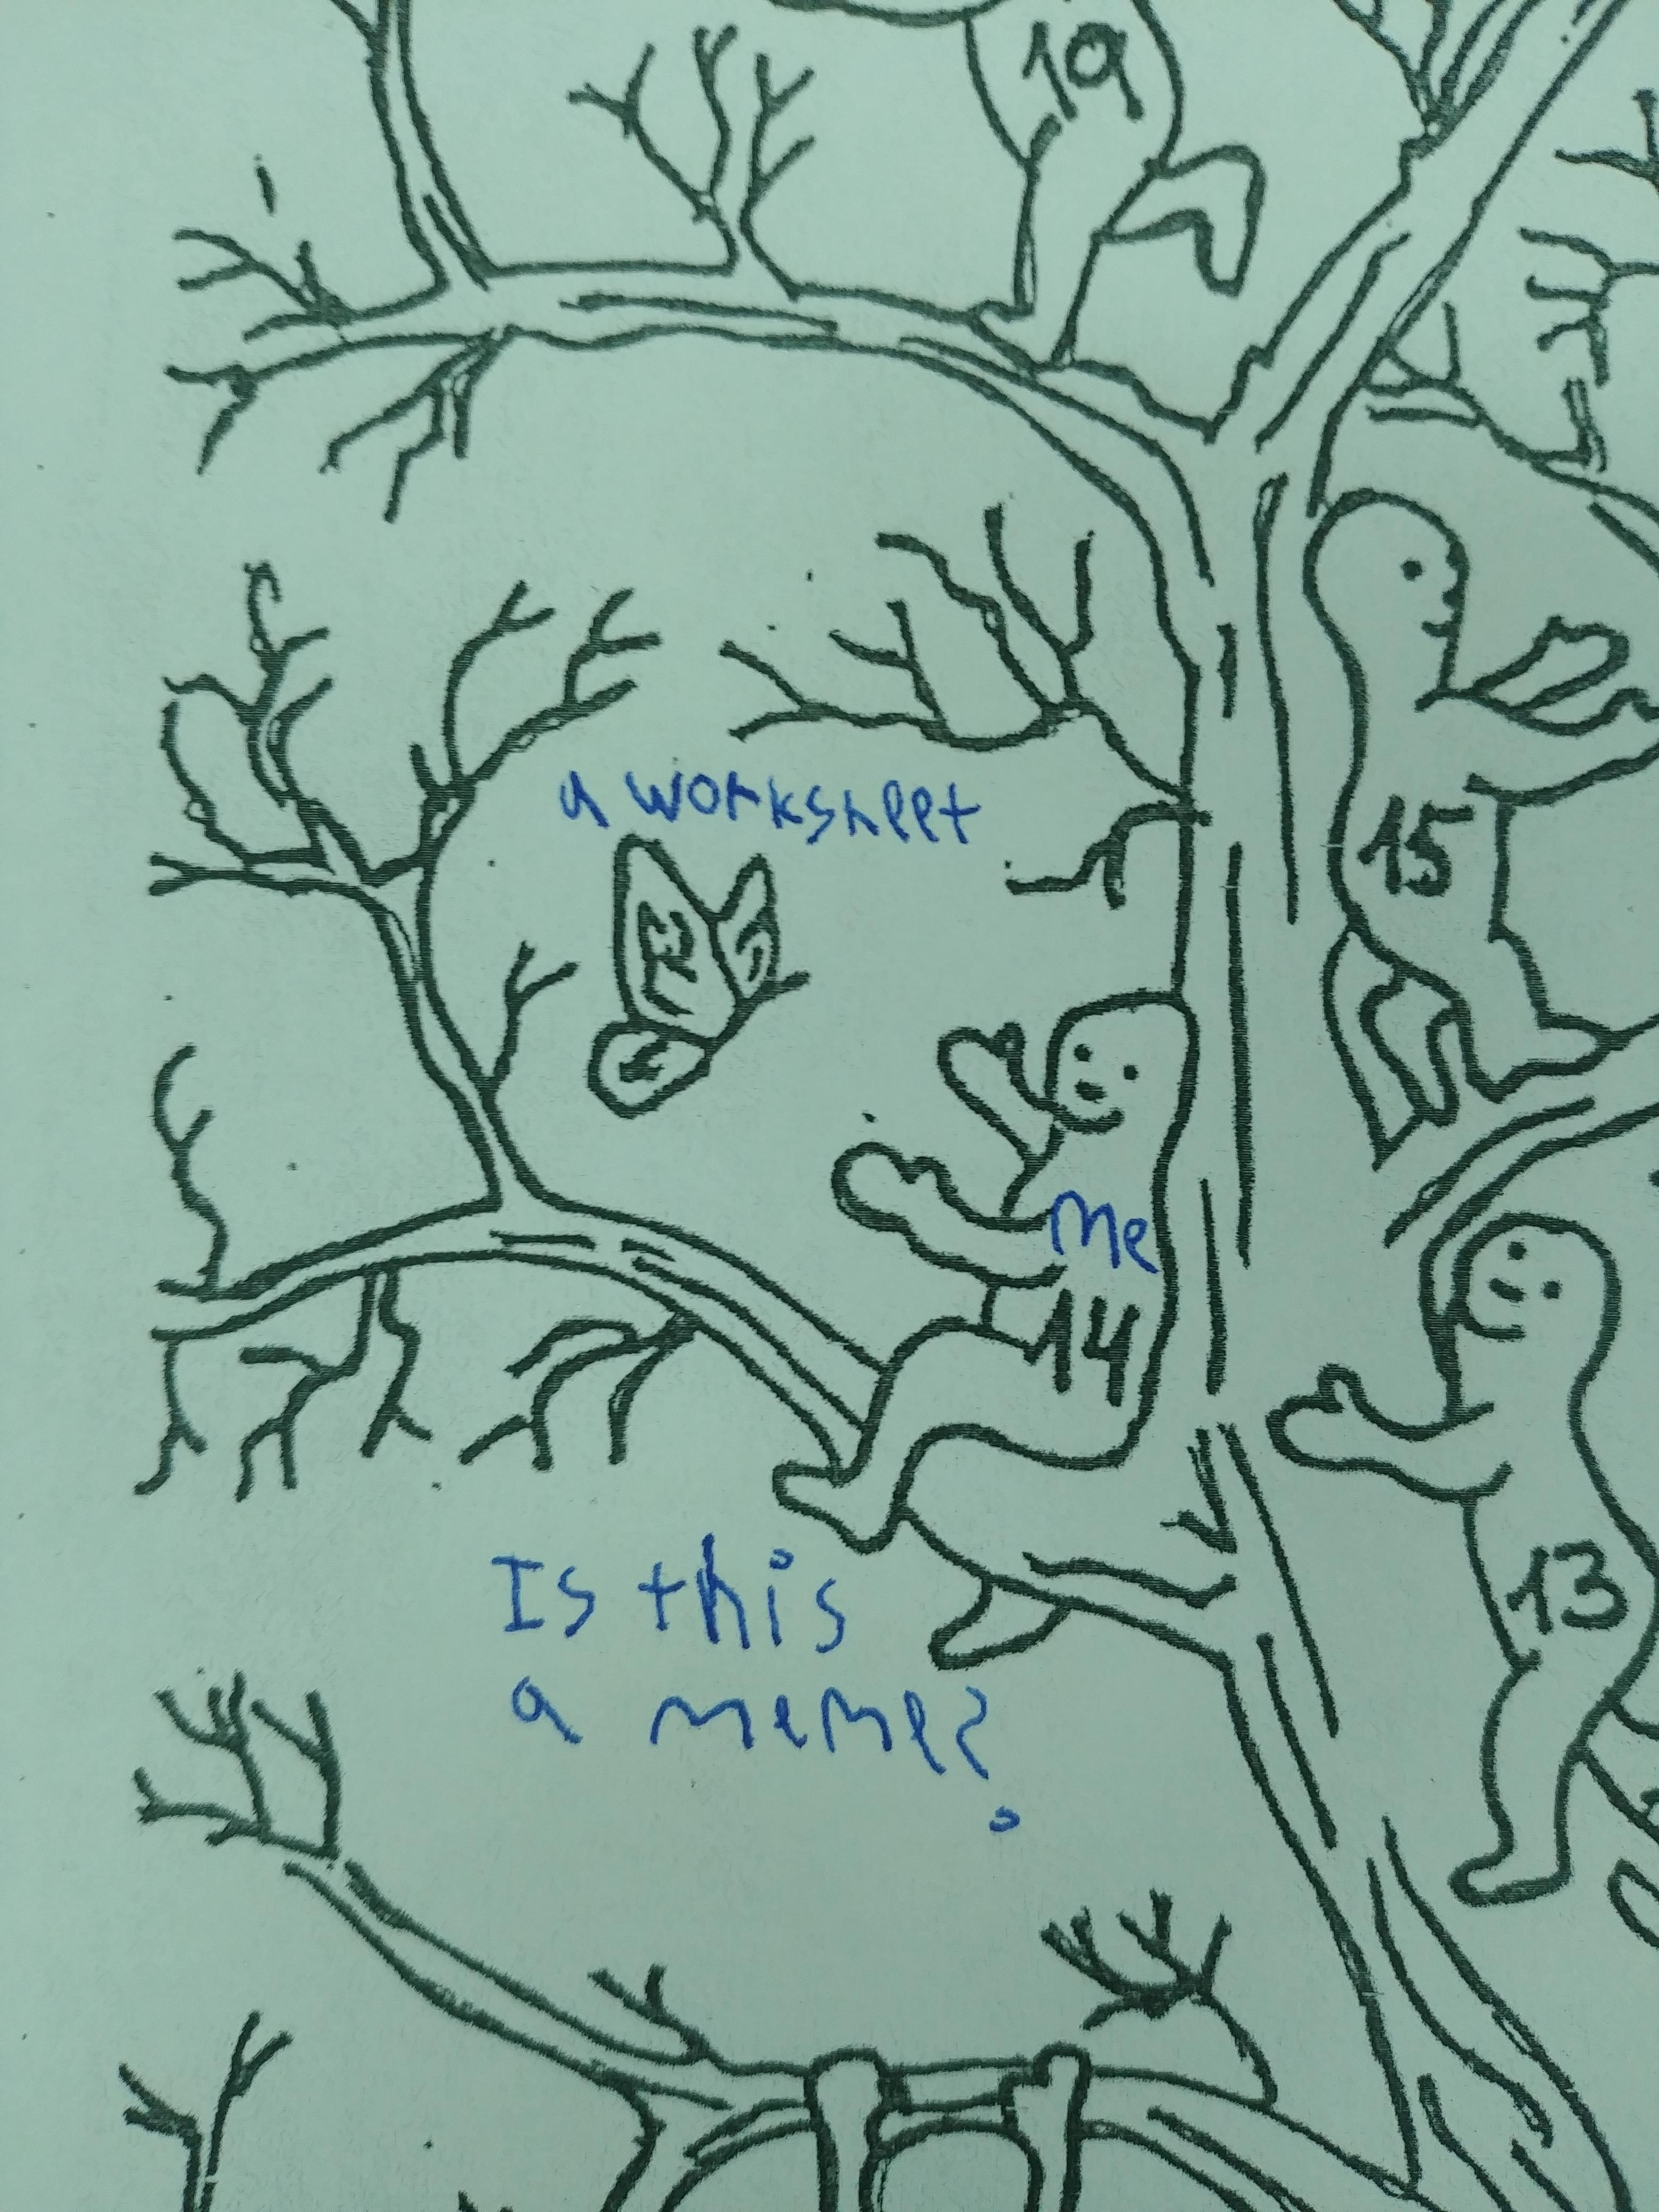 19
15
a worksheet
Me
14
13
Is this
a meme?